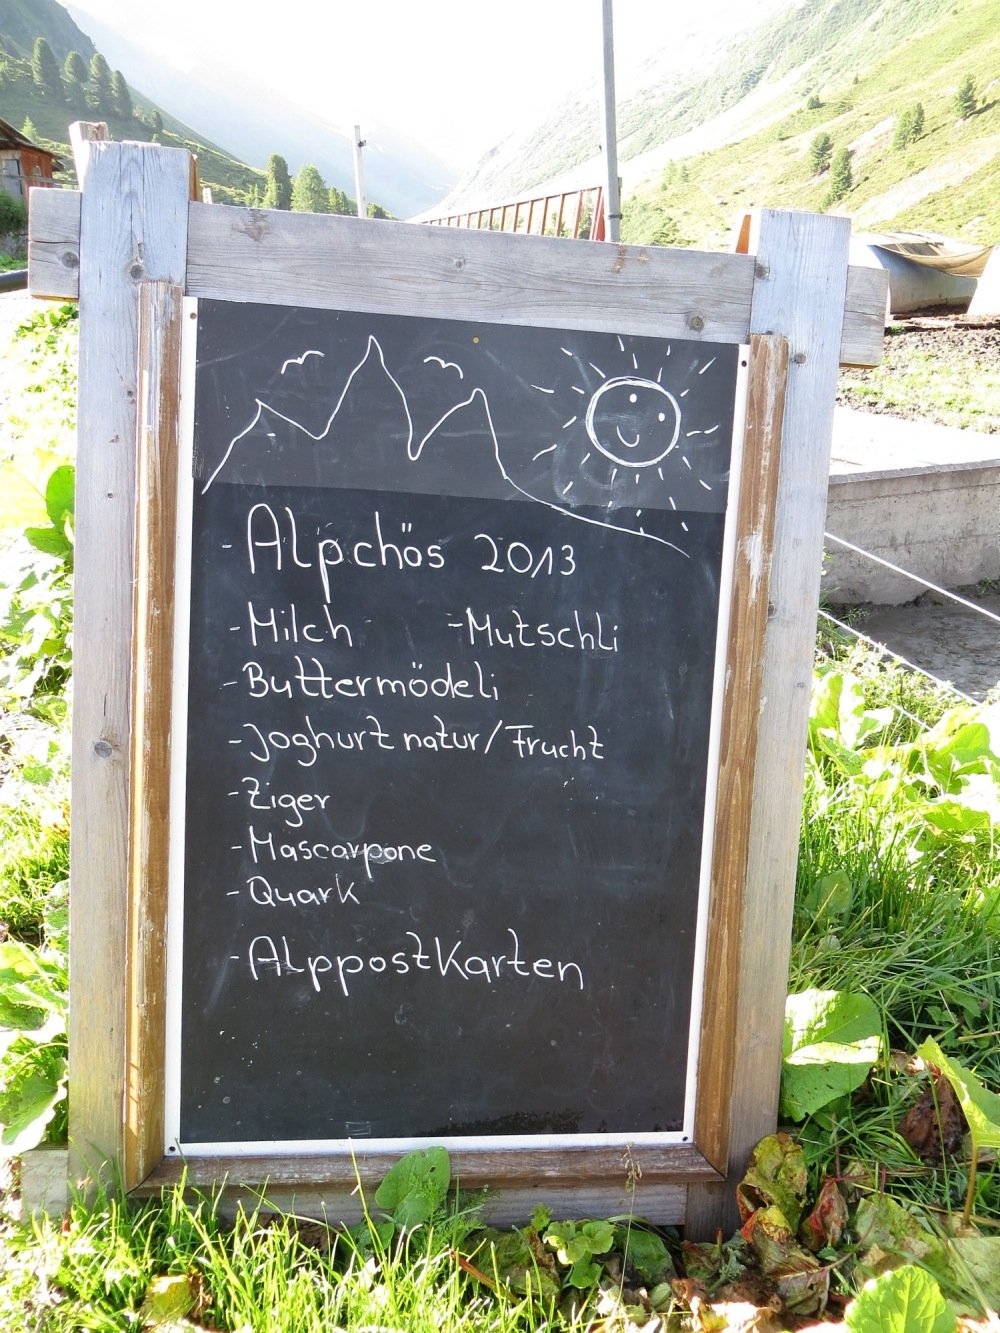 - Alpchös 2013
- Milch - Mutschli
- Buttermödeli
- Joghurt natur/Frucht
- Ziger
- Mascarpone
- Quark
- Alppostkarten